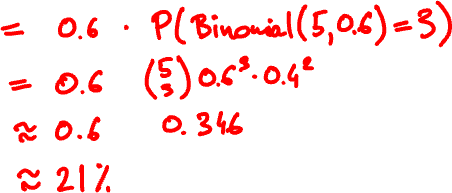 = 0.6 · P(Binomial(5,0.6)=3)
= 0.6 (5 3) 0.6³·0.4²
≈ 0.6 0.346
≈ 21%